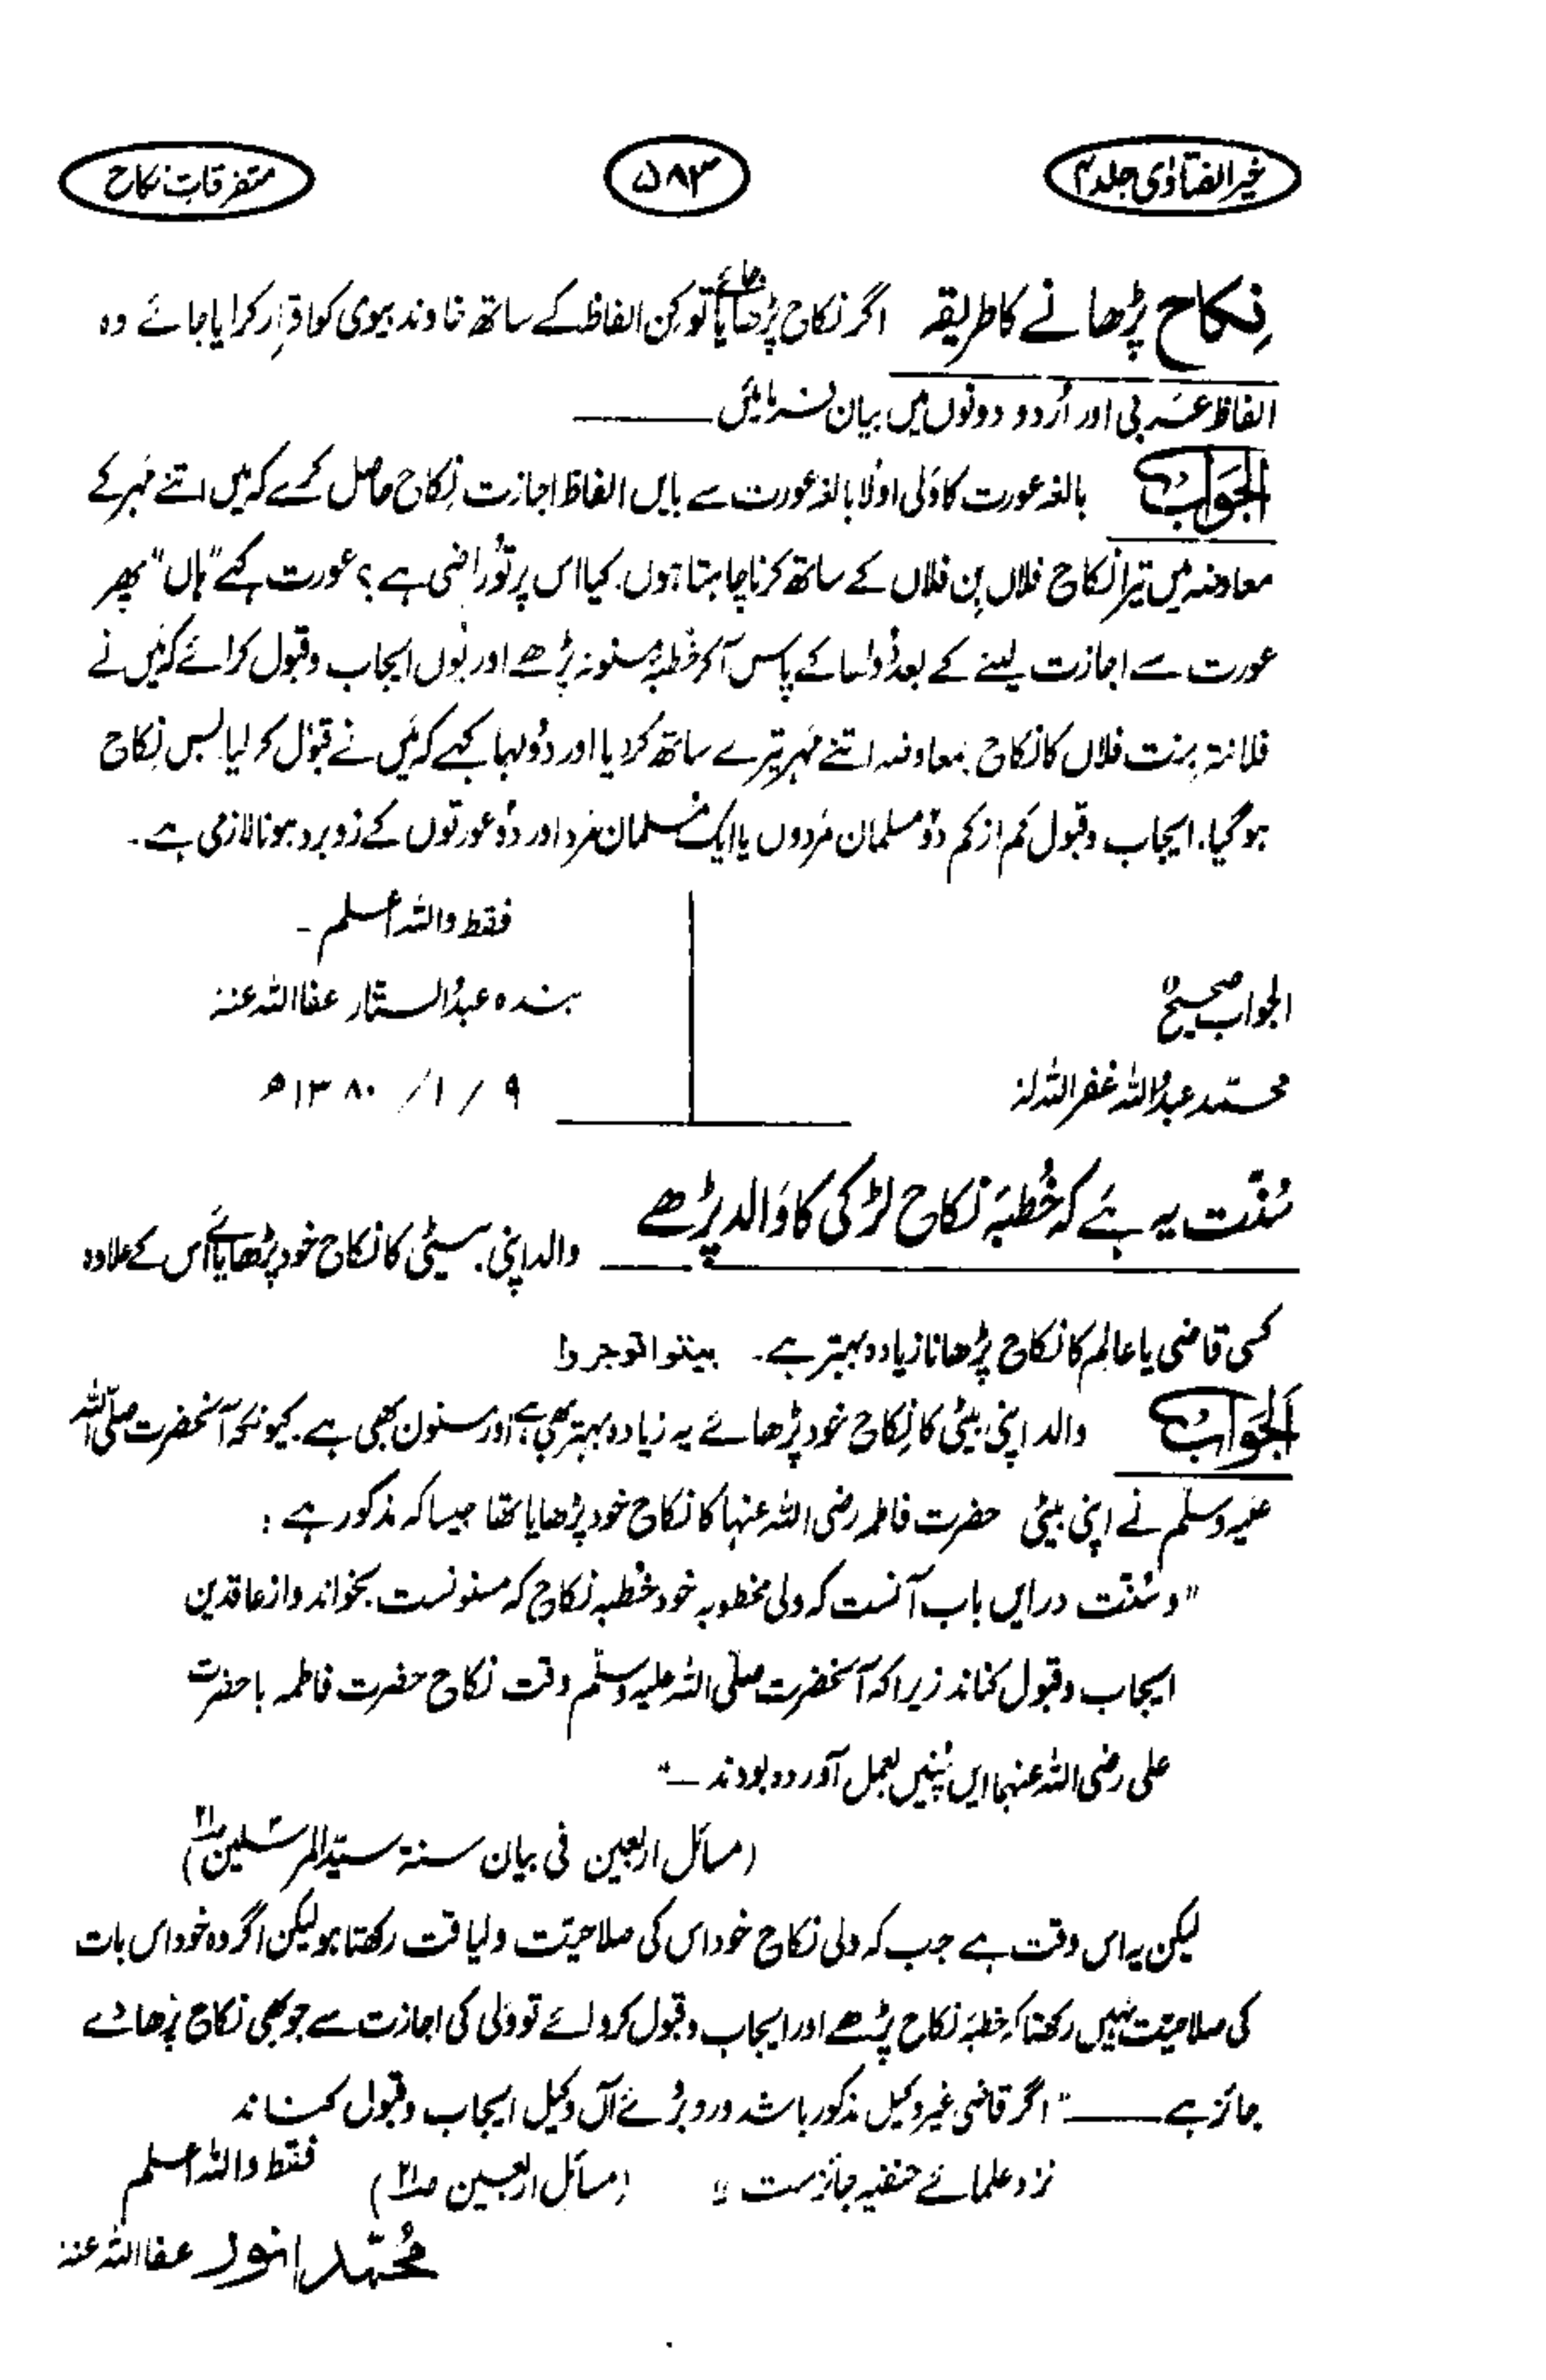 خیر الفتاوٰی جلد ۴
۵۸۳
متفرقات نکاح
نکاح پڑھانے کا طریقہ اگر نکاح پڑھایا جائے تو کن الفاظ کے ساتھ خاوند بیوی کو اقرار کرایا جائے وہ
الفاظ عربی اور اُردو دونوں میں بیان فرمائیں
الجواب بالغہ عورت کا ولی اولاً بالغہ عورت سے بایں الفاظ اجازت نکاح حاصل کرے کہ میں اتنے مہر کے
معاوضہ میں تیرا نکاح فلاں بن فلاں کے ساتھ کرنا چاہتا ہوں۔ کیا اس پر تو راضی ہے؟ عورت کہے "ہاں" پھر
عورت سے اجازت لینے کے بعد دُولہا کے پاس آکر خطبہ مسنونہ پڑھے اور یُوں ایجاب و قبول کرائے کہ میں نے
فلانۃ بنت فلاں کا نکاح بمعاوضہ اتنے مہر تیرے ساتھ کر دیا اور دُولہا کہے کہ میں نے قبول کر لیا بس نکاح
ہو گیا۔ ایجاب و قبول کم از کم دو مسلمان مردوں یا ایک مسلمان مرد اور دو عورتوں کے رُوبرو ہونا لازمی ہے۔
فقط واللہ اعلم ۔
الجواب صحیح
بندہ عبدالستار عفا اللہ عنہ
محمد عبداللہ غفر اللہ لہ
۹ / ۱ / ۱۳۸۰ ھ
سُنّت یہ ہے کہ خُطبہ نکاح لڑکی کا والد پڑھے والد اپنی بیٹی کا نکاح خود پڑھائے یا اُس کے علاوہ
کسی قاضی یا عالم کا نکاح پڑھانا زیادہ بہتر ہے۔ بینوا توجروا
الجواب والد اپنی بیٹی کا نکاح خود پڑھائے یہ زیادہ بہتر بھی ہے اور مسنون بھی ہے۔ کیونکہ آنحضرت صلی اللہ
علیہ وسلم نے اپنی بیٹی حضرت فاطمہ رضی اللہ عنہا کا نکاح خود پڑھایا تھا جیسا کہ مذکور ہے :
"و سُنّت دریں باب آنست کہ ولی مخطوبہ خود خطبہ نکاح کہ مسنونست بخواند و از عاقدین
ایجاب و قبول کناند زیرا کہ آنحضرت صلی اللہ علیہ وسلم وقت نکاح حضرت فاطمہ با حضرت
علی رضی اللہ عنہما ایں چنیں بعمل آوردہ بودند ـ"
(مسائل اربعین فی بیان سنۃ سید المرسلین صـ۲۱)
لیکن یہ اس وقت ہے جب کہ ولی نکاح خود اس کی صلاحیت و لیاقت رکھتا ہو لیکن اگر وہ خود اس بات
کی صلاحیت نہیں رکھتا کہ خطبہ نکاح پڑھے اور ایجاب و قبول کروائے تو ولی کی اجازت سے جو بھی نکاح پڑھائے
جائز ہے ـــــ "اگر قاضی غیر وکیل مذکور باشد و روبروئے آں وکیل ایجاب و قبول کناند
نزد علمائے حنفیہ جائزست" (مسائل اربعین صـ۲۱) فقط واللہ اعلم
محمد انور عفا اللہ عنہ